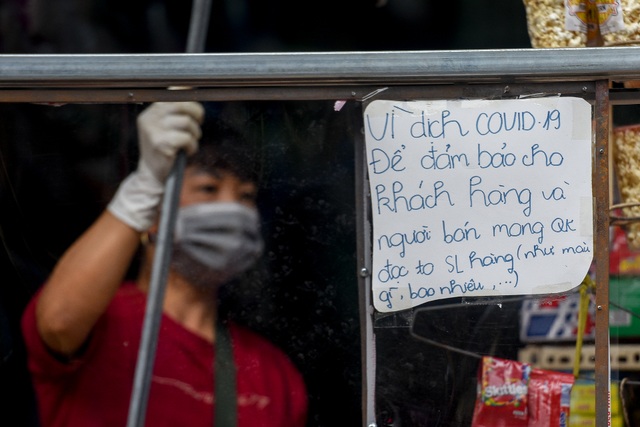 Vì dịch COVID-19
Để đảm bảo cho
khách hàng và
người bán mong QK
đọc to SL hàng (như màu
gì, bao nhiêu, ...)
Skittles